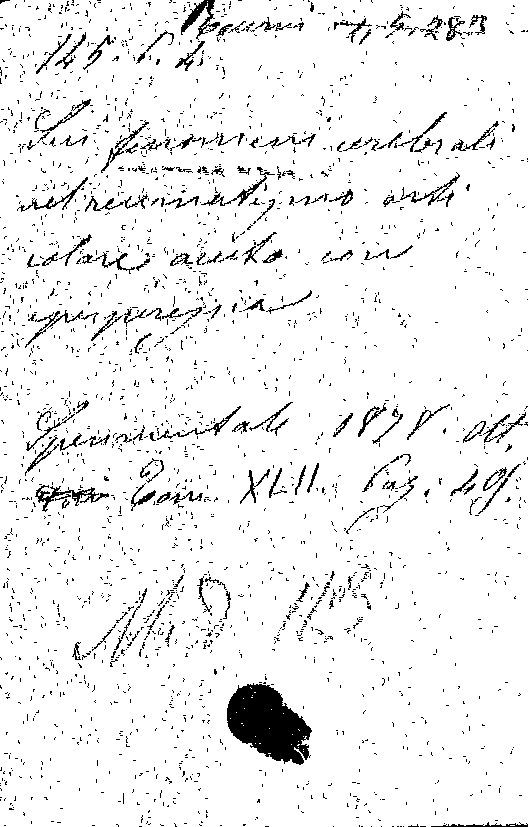 145. 6. 4.
Sui fenomeni cerebrali
nel reumatismo arti
colare acuto con
iperpiressia
Sperimentale 1878. Ott.
Tom. XLII. Pag. 401.